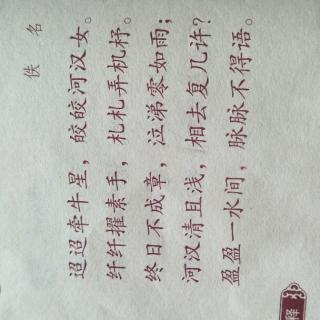 佚名
迢迢牵牛星，皎皎河汉女。
纤纤擢素手，札札弄机杼。
终日不成章，泣涕零如雨；
河汉清且浅，相去复几许？
盈盈一水间，脉脉不得语。
释